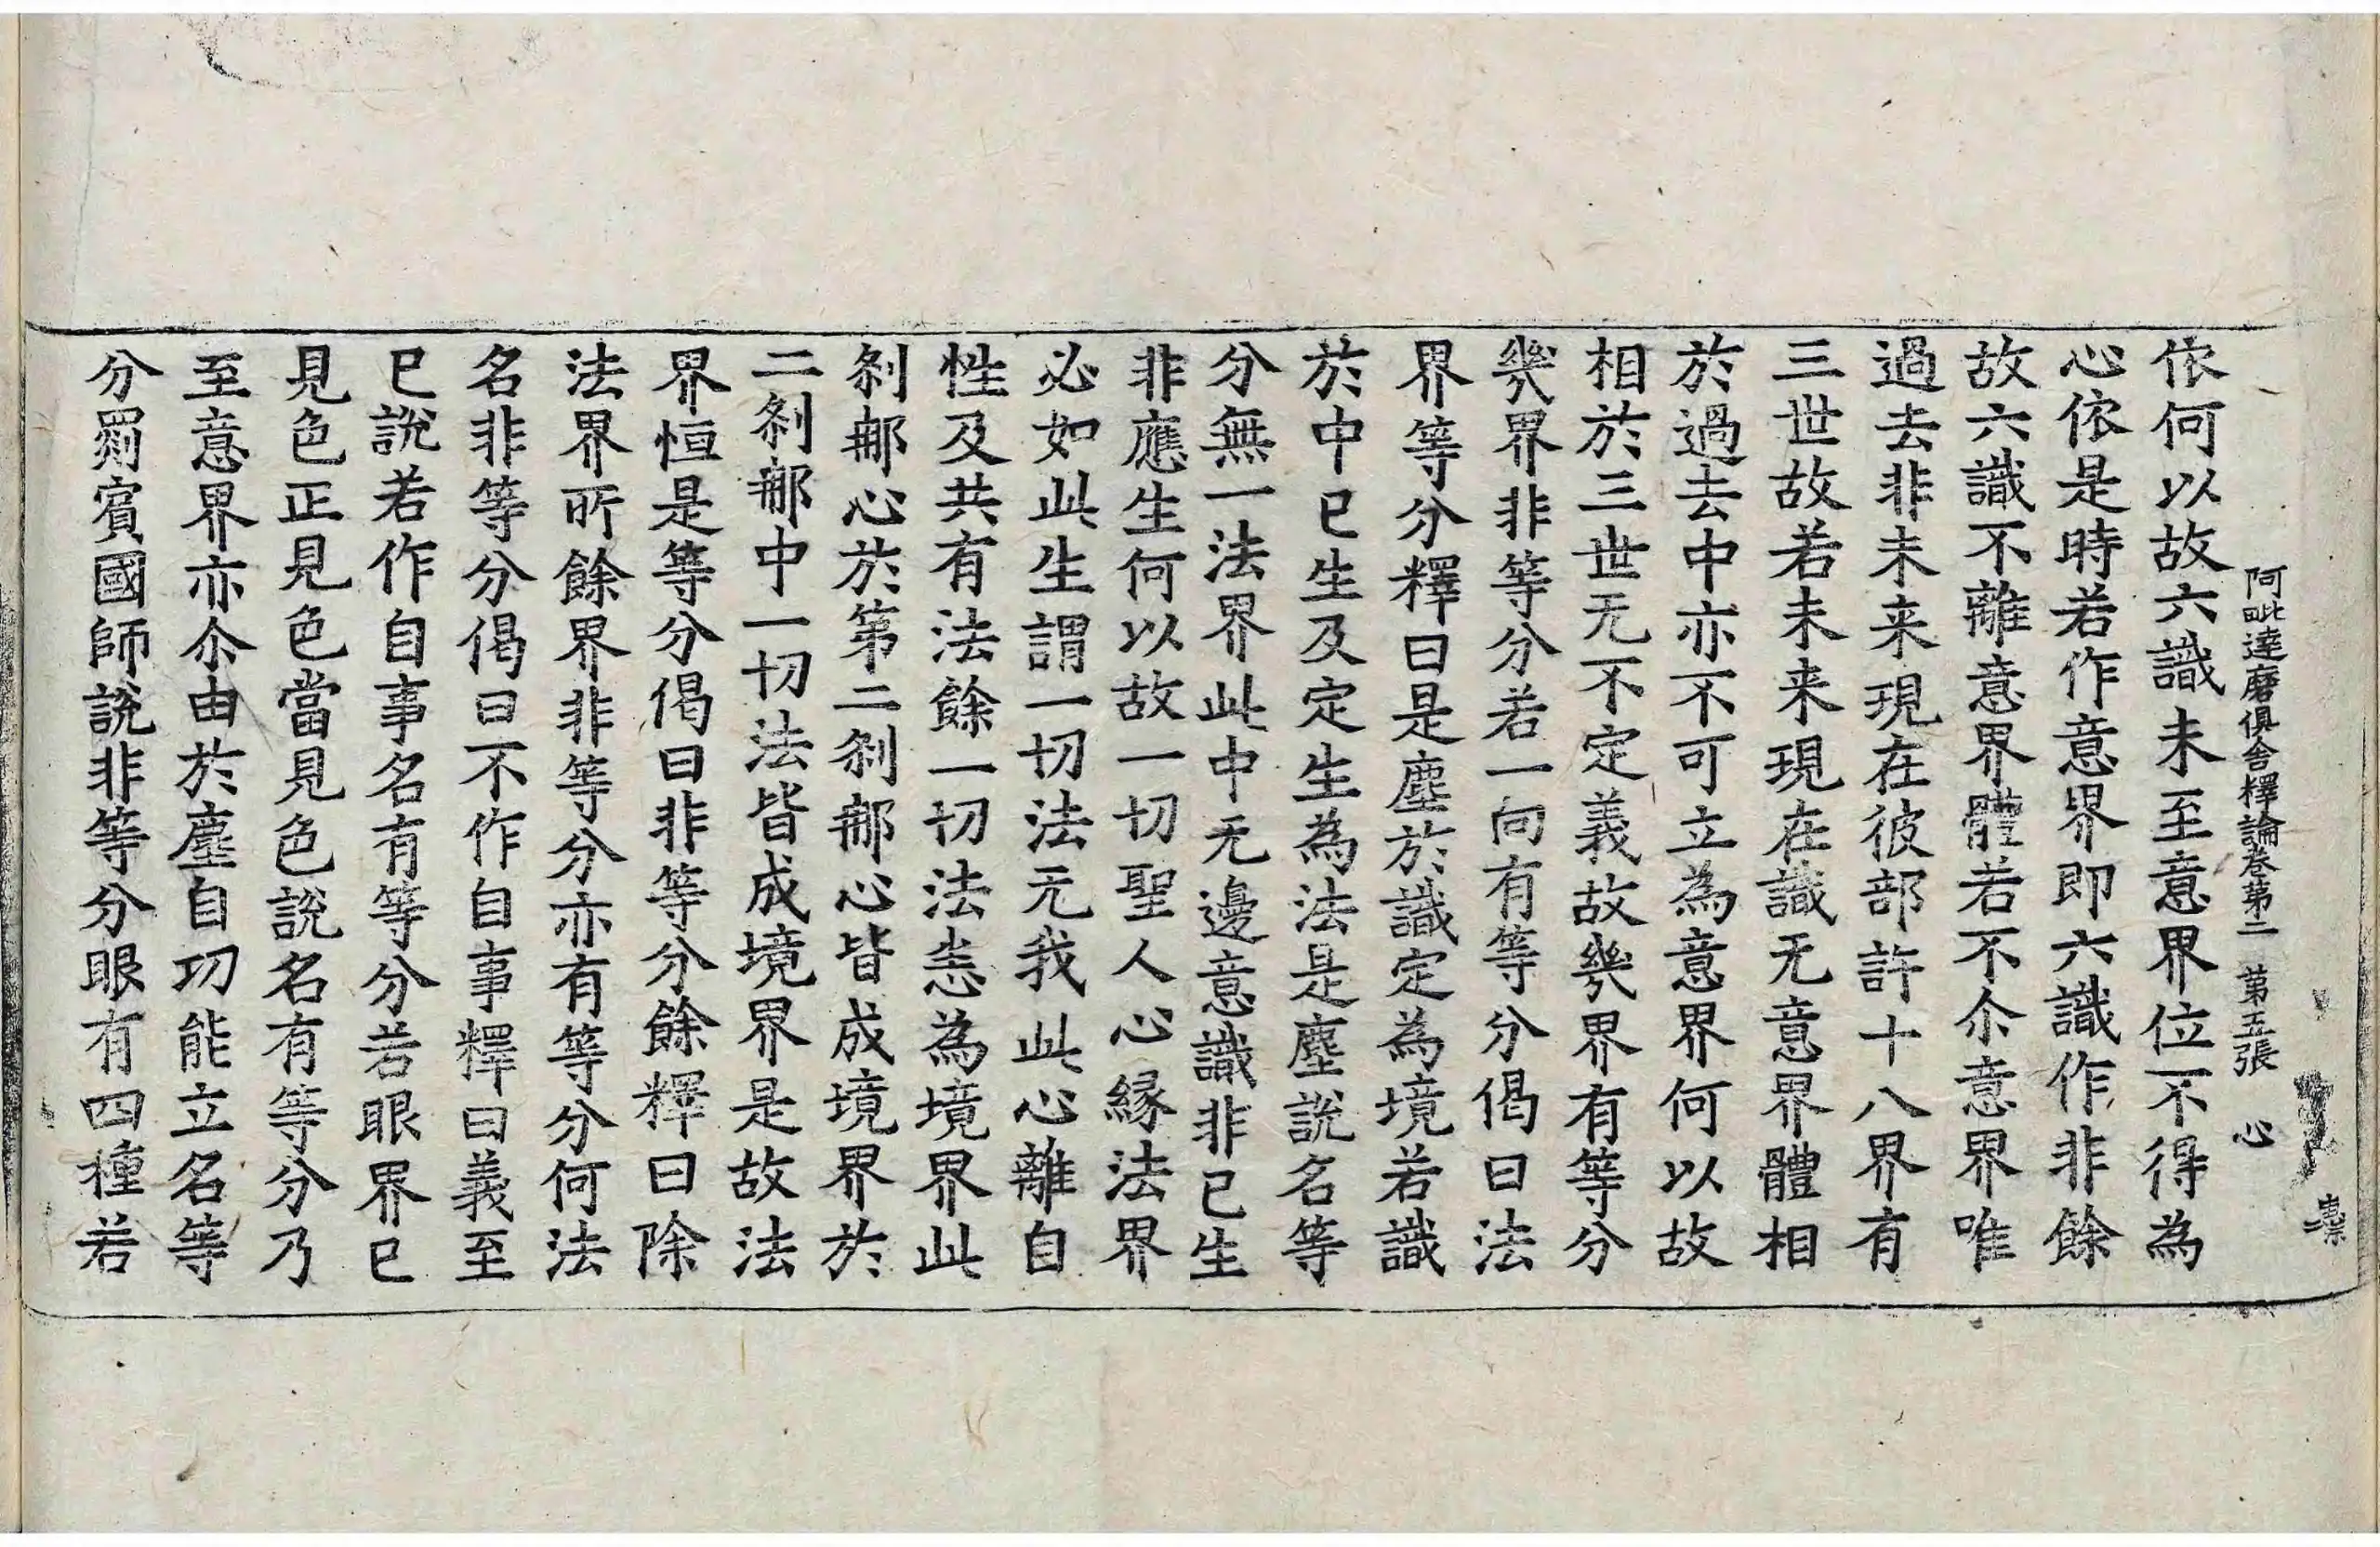 阿毗達磨俱舍釋論卷第二 第五張 心
依何以故六識未至意界位不得為
心依是時若作意界即六識作非餘
故六識不離意界體若不尒意界唯
過去非未来現在彼部許十八界有
三世故若未来現在識无意界體相
於過去中亦不可立為意界何以故
相於三世无不定義故幾界有等分
幾界非等分若一向有等分偈曰法
界等分釋曰是塵於識定為境若識
於中已生及定生為法是塵說名等
分無一法界此中无邊意識非已生
非應生何以故一切聖人心緣法界
必如此生謂一切法无我此心離自
性及共有法餘一切法恚為境界此
剎那心於第二剎那心皆成境界於
二剎那中一切法皆成境界是故法
界恒是等分偈曰非等分餘釋曰除
法界所餘界非等分亦有等分何法
名非等分偈曰不作自事釋曰義至
已說若作自事名有等分若眼界已
見色正見色當見色說名有等分乃
至意界亦尒由於塵自功能立名等
分罽賓國師說非等分眼有四種若